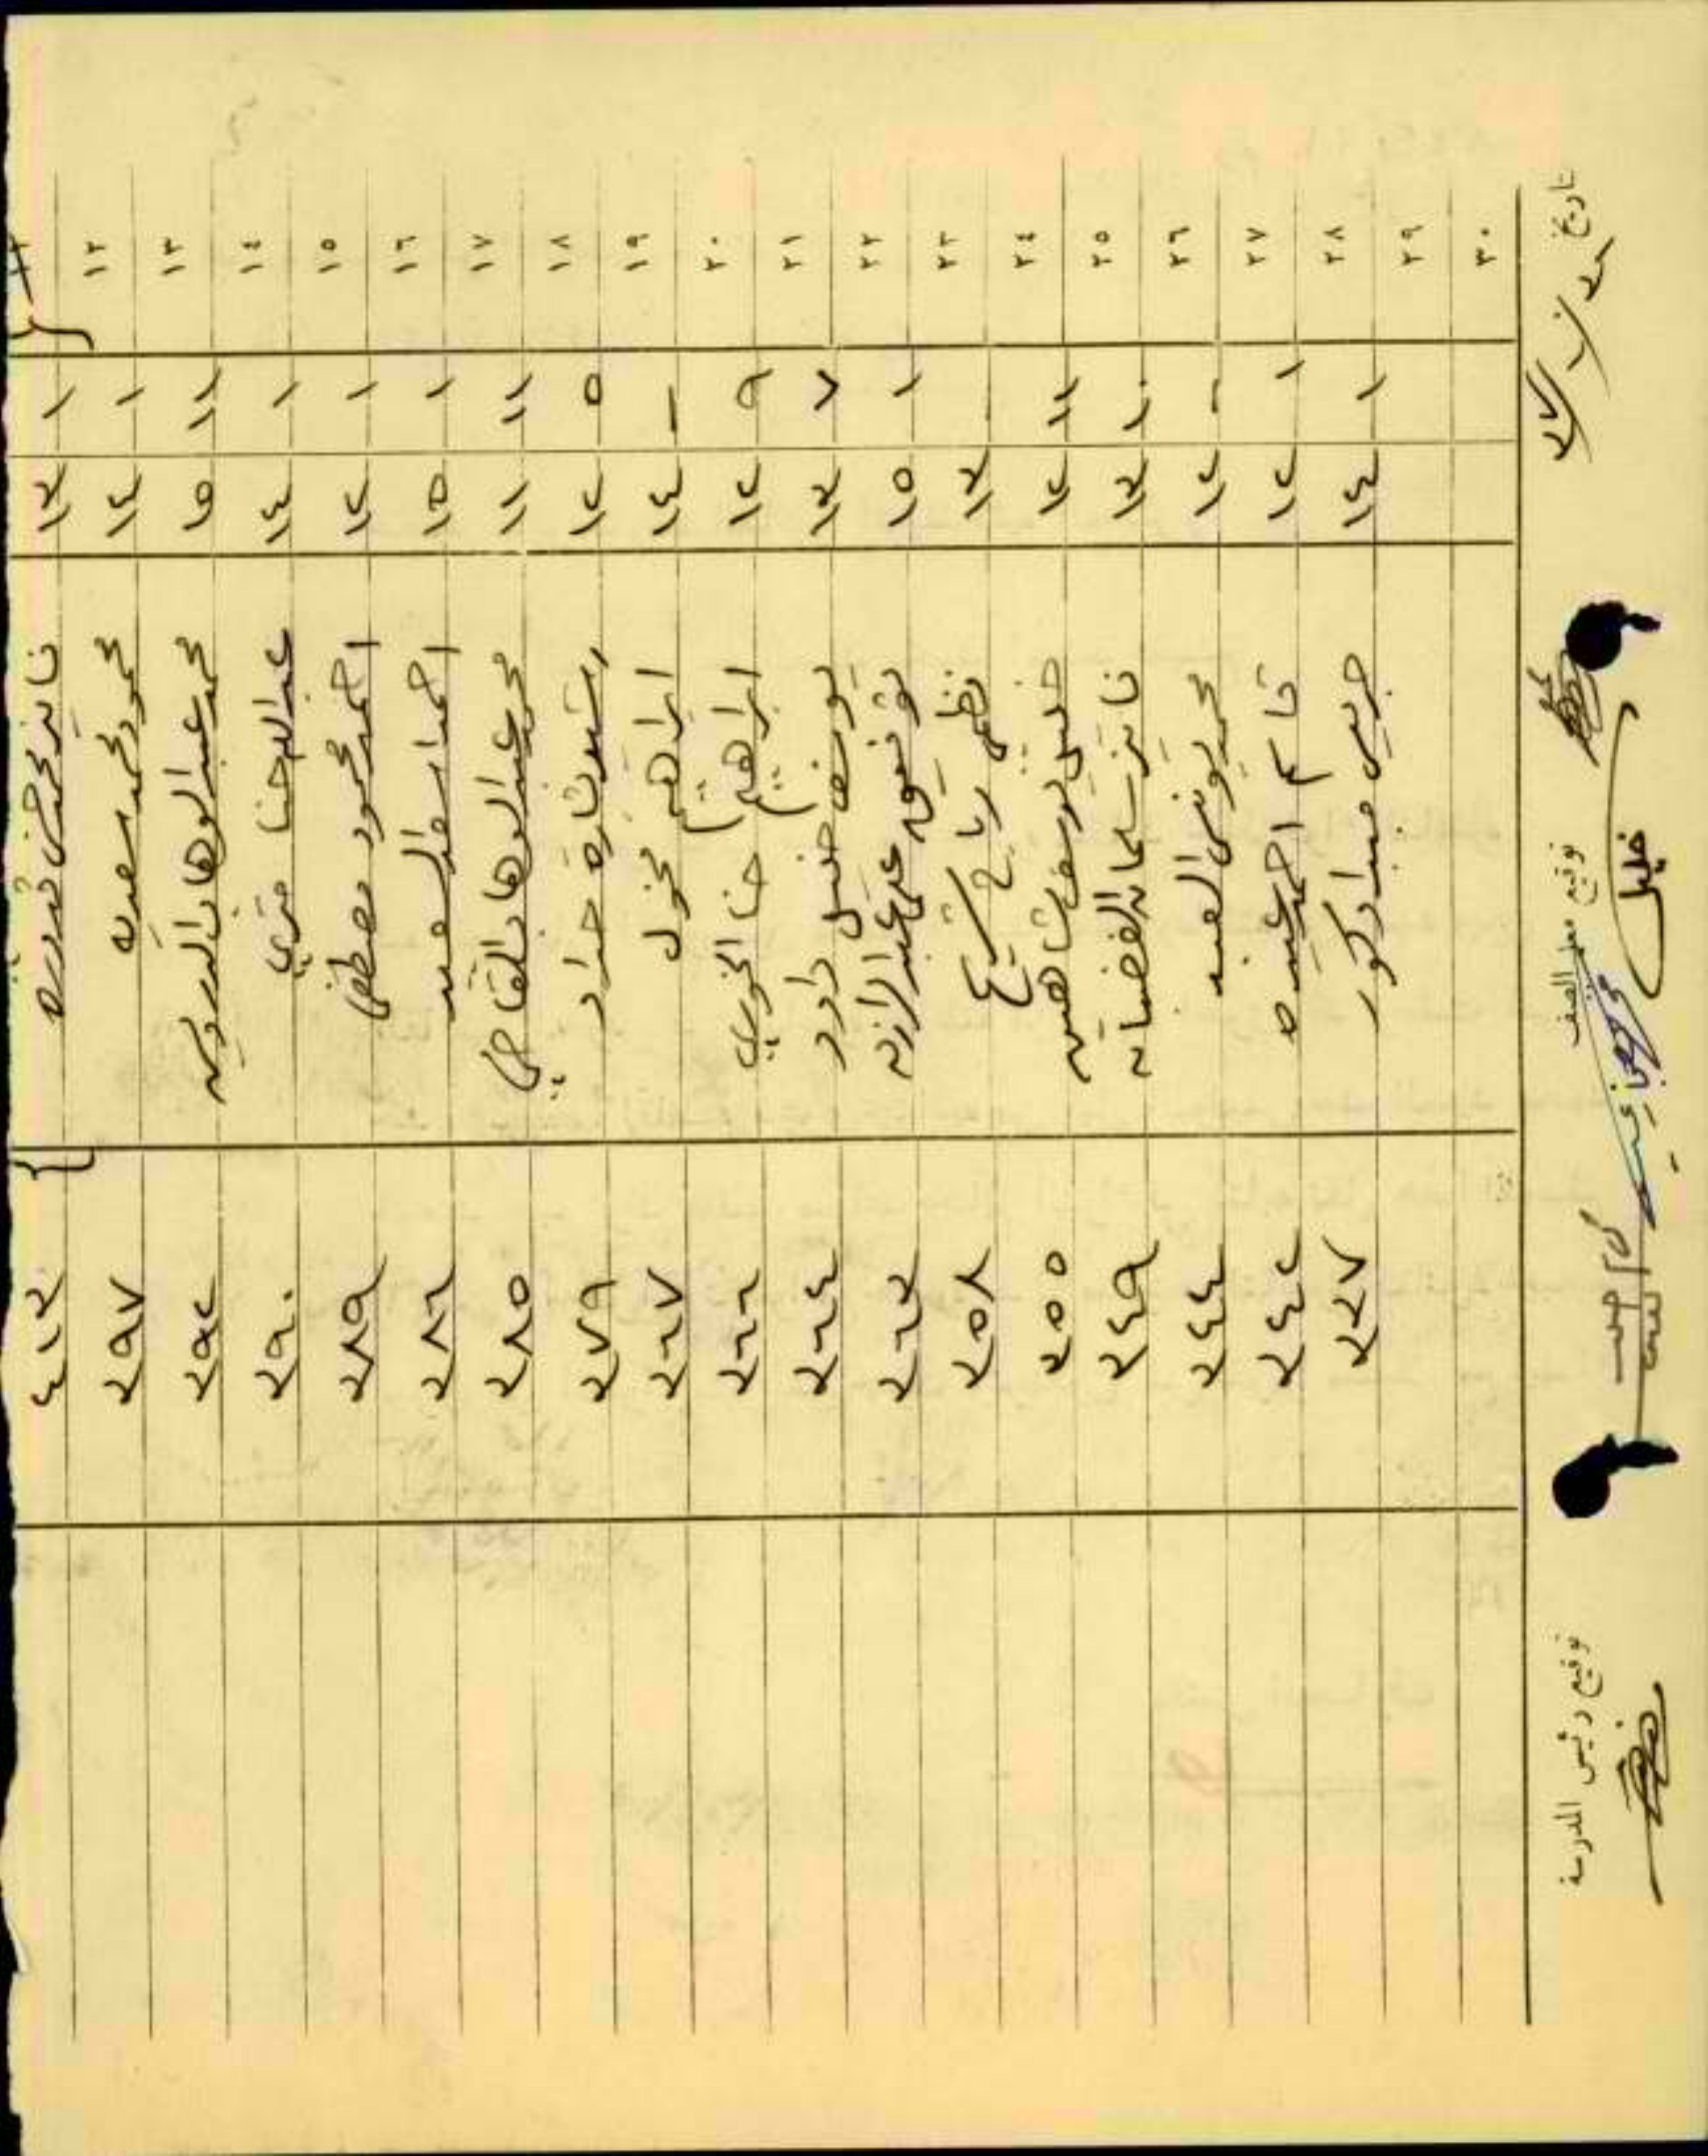 ١١ ١ ١٣ فايز محمد حسن قدوره ٤١٣
١٢ ١ ١٤ محمود محمد سعديه ٣٩٧
١٣ ١١ ١٥ محمد عبد الوهاب الدرويش ٣٩٢
١٤ ١ ١٤ عبدالله حنا متري ٣٩٠
١٥ ١ ١٢ احمد محمود مصطفى ٣٨٩
١٦ ١ ١٥ احمد اسعد السعيد ٣٨٦
١٧ ١١ ١١ محمد عبد الوهاب القاضي ٣٨٥
١٨ ٥ ١٢ رشيد شاره حداد ٣٧٩
١٩ – ١٤ ابراهيم مخول ٣٦٧
٢٠ ٩ ١٢ ابراهيم حنا الخوري ٣٦٦
٢١ ٧ ١٣ يوسف خليل داود ٣٦٤
٢٢ ١ ١٥ توفيق علي عبد الرازق ٣٦٣
٢٣ – ١٣ نظمي رباح شريح ٣٥٨
٢٤ ١١ ١٢ خليل يوسف شاهين ٣٥٥
٢٥ ١٠ ١٣ فايز سليمان الفضيله ٣٤٩
٢٦ – ١٢ محمد يونس العبد ٣٤٤
٢٧ ١ ١٢ قاسم احمد عبده ٣٤٢
٢٨ ١ ١٤ جريس مبدا دكور ٣٣٧
٢٩
٣٠
تاريخ
توقيع معلم الصف
توقيع رئيس المدرسة
خليل